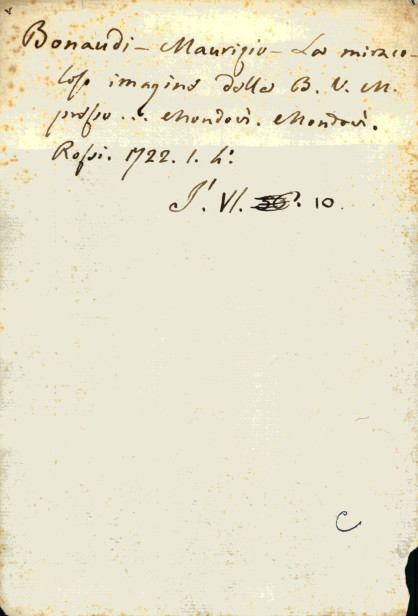 Bonaudi - Maurizio - La miraco-
losa imagine della B. V. M.
presso ... Mondovì. Mondovì.
Rossi. 1722. 1. 4°.
J'. VI. 10.
C